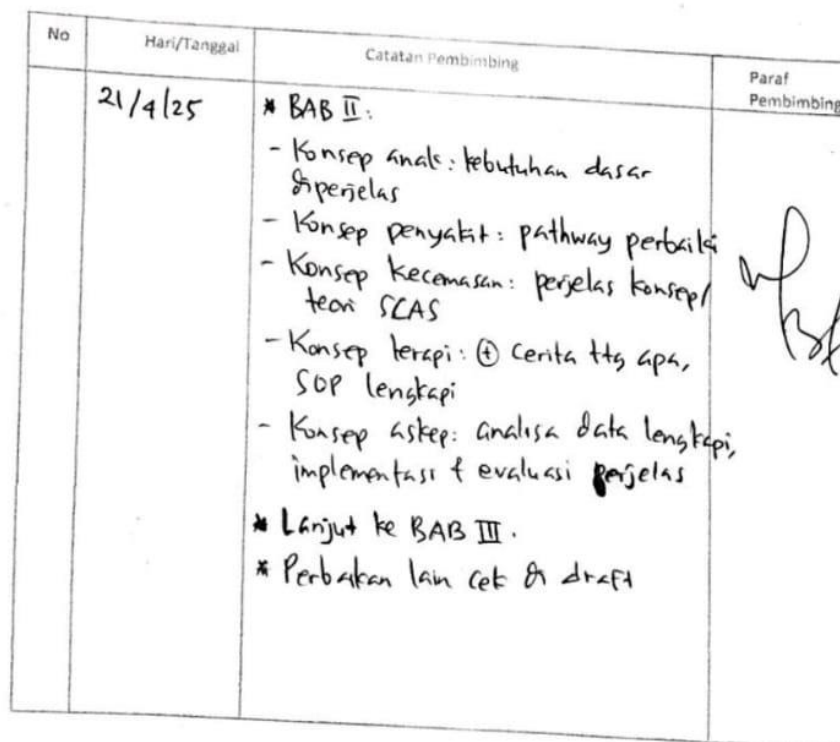 No
Hari/Tanggal
Catatan Pembimbing
Paraf
Pembimbing
21/4/25
* BAB II:
- Konsep anak: kebutuhan dasar
diperjelas
- Konsep penyakit: pathway perbaiki
- Konsep kecemasan: perjelas konsep/
teori SCAS
- Konsep terapi: ⊕ Cerita ttg apa,
SOP lengkapi
- Konsep askep: analisa data lengkapi,
implementasi & evaluasi perjelas
* Lanjut ke BAB III.
* Perbaikan lain cek di draft